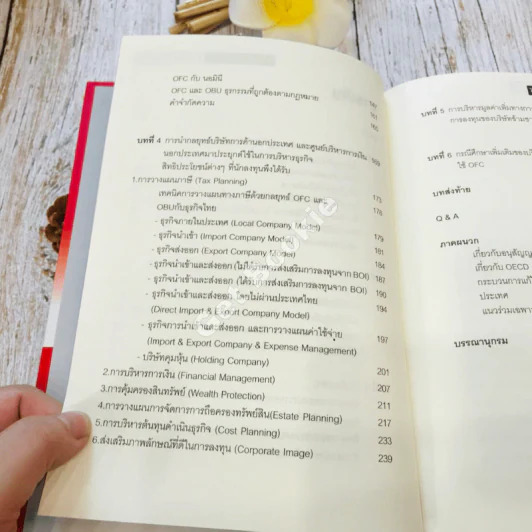 OFC กับ นอมินี
OFC และ OBU ธุรกรรมที่ถูกต้องตามกฎหมาย 161
คำจำกัดความ 165
บทที่ 4 การนำกลยุทธ์บริษัทการค้านอกประเทศ และศูนย์บริหารการเงิน 169
นอกประเทศมาประยุกต์ใช้ในการบริหารธุรกิจ
สิทธิประโยชน์ต่างๆ ที่นักลงทุนพึงได้รับ
1.การวางแผนภาษี (Tax Planning) 173
เทคนิคการวางแผนทางภาษีด้วยกลยุทธ์ OFC และ 178
OBUกับธุรกิจไทย
- ธุรกิจภายในประเทศ (Local Company Model) 179
- ธุรกิจนำเข้า (Import Company Model) 181
- ธุรกิจส่งออก (Export Company Model) 184
- ธุรกิจนำเข้าและส่งออก (ไม่ได้รับการส่งเสริมการลงทุนจาก BOI) 187
- ธุรกิจนำเข้าและส่งออก (ได้รับการส่งเสริมการลงทุนจาก BOI) 190
- ธุรกิจนำเข้าและส่งออก โดยไม่ผ่านประเทศไทย 194
(Direct Import & Export Company Model)
- ธุรกิจการนำเข้าและส่งออก และการวางแผนค่าใช้จ่าย 197
(Import & Export Company & Expense Management)
- บริษัทคุมหุ้น (Holding Company) 201
2.การบริหารการเงิน (Financial Management) 207
3.การคุ้มครองสินทรัพย์ (Wealth Protection) 211
4.การวางแผนการจัดการการถือครองทรัพย์สิน(Estate Planning) 217
5.การบริหารต้นทุนดำเนินธุรกิจ (Cost Planning) 233
6.ส่งเสริมภาพลักษณ์ที่ดีในการลงทุน (Corporate Image) 239
บทที่ 5 การบริหารมูลค่าเพิ่มทางการ
การลงทุนของบริษัทข้ามชา
บทที่ 6 กรณีศึกษาเพิ่มเติมของบริ
ใช้ OFC
บทส่งท้าย
Q & A
ภาคผนวก
เกี่ยวกับอนุสัญญ
เกี่ยวกับ OECD
กระบวนการแก้
ประเทศ
แนวร่วมเฉพาะ
บรรณานุกรม